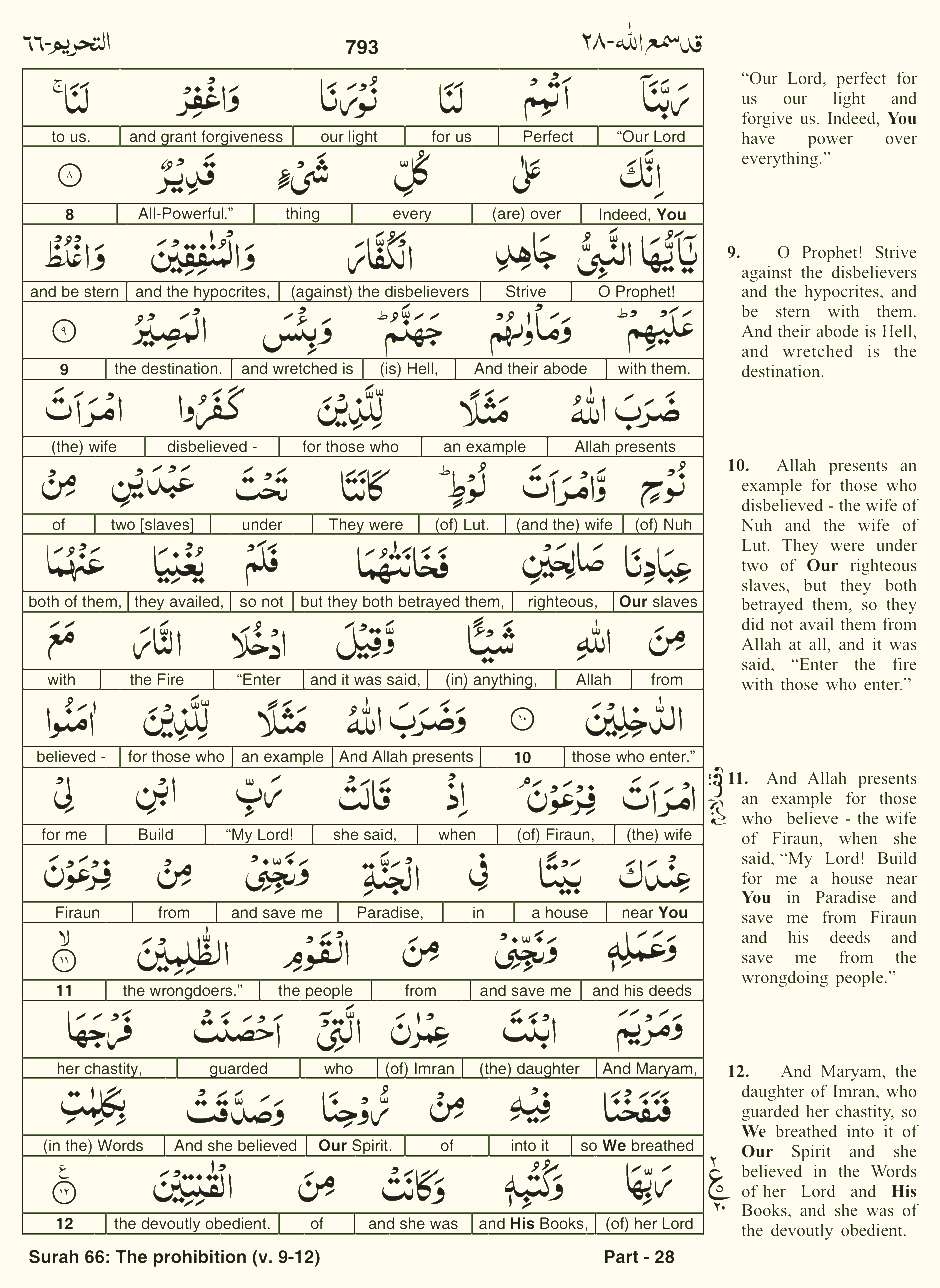 التحريم-٦٦ 793 قد سمع الله-٢٨
رَبَّنَآ اَتْمِمْ لَنَا نُوْرَنَا وَاغْفِرْ لَنَا ۚ
to us. and grant forgiveness our light for us Perfect “Our Lord
اِنَّكَ عَلٰى كُلِّ شَىْءٍ قَدِيْرٌ ۸
8 All-Powerful.” thing every (are) over Indeed, You
يٰٓاَيُّهَا النَّبِىُّ جَاهِدِ الْكُفَّارَ وَالْمُنٰفِقِيْنَ وَاغْلُظْ
and be stern and the hypocrites, (against) the disbelievers Strive O Prophet!
عَلَيْهِمْ ؕ وَمَاْوٰٮهُمْ جَهَنَّمُ ؕ وَبِئْسَ الْمَصِيْرُ ۹
9 the destination. and wretched is (is) Hell, And their abode with them.
ضَرَبَ اللّٰهُ مَثَلًا لِّلَّذِيْنَ كَفَرُوا امْرَاَتَ
(the) wife disbelieved - for those who an example Allah presents
نُوْحٍ وَّامْرَاَتَ لُوْطٍ ؕ كَانَتَا تَحْتَ عَبْدَيْنِ مِنْ
of two [slaves] under They were (of) Lut. (and the) wife (of) Nuh
عِبَادِنَا صَالِحَيْنِ فَخَانَتٰهُمَا فَلَمْ يُغْنِيَا عَنْهُمَا
both of them, they availed, so not but they both betrayed them, righteous, Our slaves
مِنَ اللّٰهِ شَيْـًٔا وَّقِيْلَ ادْخُلَا النَّارَ مَعَ
with the Fire “Enter and it was said, (in) anything, Allah from
الدّٰخِلِيْنَ ۱۰ وَضَرَبَ اللّٰهُ مَثَلًا لِّلَّذِيْنَ اٰمَنُوا
believed - for those who an example And Allah presents 10 those who enter.”
امْرَاَتَ فِرْعَوْنَ ۘ اِذْ قَالَتْ رَبِّ ابْنِ لِىْ
for me Build “My Lord! she said, when (of) Firaun, (the) wife
عِنْدَكَ بَيْتًا فِى الْجَنَّةِ وَنَجِّنِىْ مِنْ فِرْعَوْنَ
Firaun from and save me Paradise, in a house near You
وَعَمَلِهٖ وَنَجِّنِىْ مِنَ الْقَوْمِ الظّٰلِمِيْنَ ۙ ۱۱
11 the wrongdoers.” the people from and save me and his deeds
وَمَرْيَمَ ابْنَتَ عِمْرٰنَ الَّتِىْٓ اَحْصَنَتْ فَرْجَهَا
her chastity, guarded who (of) Imran (the) daughter And Maryam,
فَنَفَخْنَا فِيْهِ مِنْ رُّوْحِنَا وَصَدَّقَتْ بِكَلِمٰتِ
(in the) Words And she believed Our Spirit. of into it so We breathed
رَبِّهَا وَكُتُبِهٖ وَكَانَتْ مِنَ الْقٰنِتِيْنَ ۱۲ ع
12 the devoutly obedient. of and she was and His Books, (of) her Lord
“Our Lord, perfect for
us our light and
forgive us. Indeed, You
have power over
everything.”
9. O Prophet! Strive
against the disbelievers
and the hypocrites, and
be stern with them.
And their abode is Hell,
and wretched is the
destination.
10. Allah presents an
example for those who
disbelieved - the wife of
Nuh and the wife of
Lut. They were under
two of Our righteous
slaves, but they both
betrayed them, so they
did not avail them from
Allah at all, and it was
said, “Enter the fire
with those who enter.”
وقف لازم
11. And Allah presents
an example for those
who believe - the wife
of Firaun, when she
said, “My Lord! Build
for me a house near
You in Paradise and
save me from Firaun
and his deeds and
save me from the
wrongdoing people.”
12. And Maryam, the
daughter of Imran, who
guarded her chastity, so
We breathed into it of
Our Spirit and she
believed in the Words
of her Lord and His
Books, and she was of
the devoutly obedient.
٢ ع ٥ ٢٠
Surah 66: The prohibition (v. 9-12) Part - 28